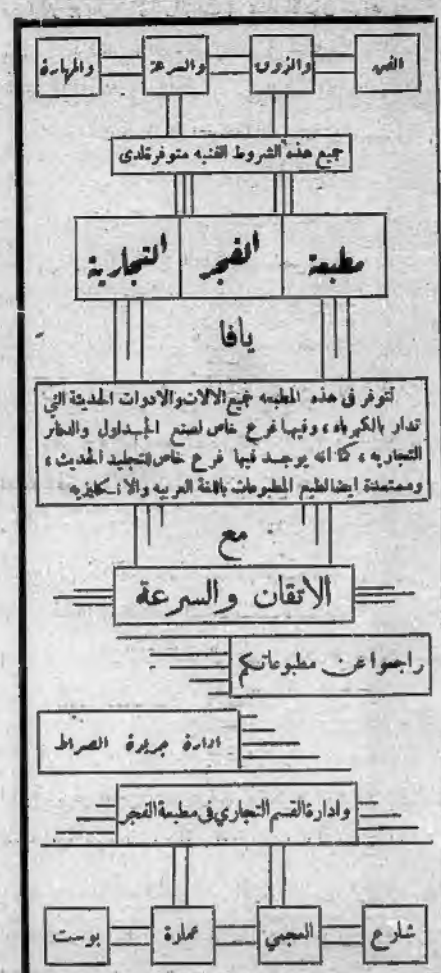 الفن والذوق والسرعة والمهارة
جميع هذه الشروط الفنيه متوفرة لدى
مطبعة الفجر التجارية
يافا
تتوفر في هذه المطبعه جميع الالات والادوات الحديثة التي
تدار بالكهرباء ، وفيها فرع خاص لصنع الجداول والدفاتر
التجاريه ، كما انه يوجد فيها فرع خاص لتجليد الحديث ،
ومستعدة ايضا لطبع المطبوعات باللغة العربيه والانكليزيه
مع
الاتقان والسرعة
راجعوا عن مطبوعاتكم
ادارة جريدة الصراط
وادارة القسم التجاري في مطبعة الفجر
شارع العجمي عمارة بوست